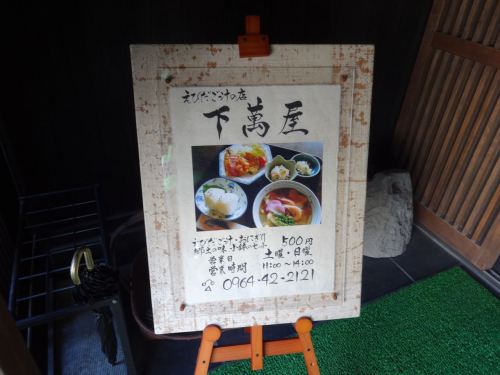 えびだご汁の店
下萬屋
えびだご汁・おにぎり
郷土の味 小鉢のセット 500円
営業日 土曜・日曜
営業時間 11:00～14:00
0964・42・2121